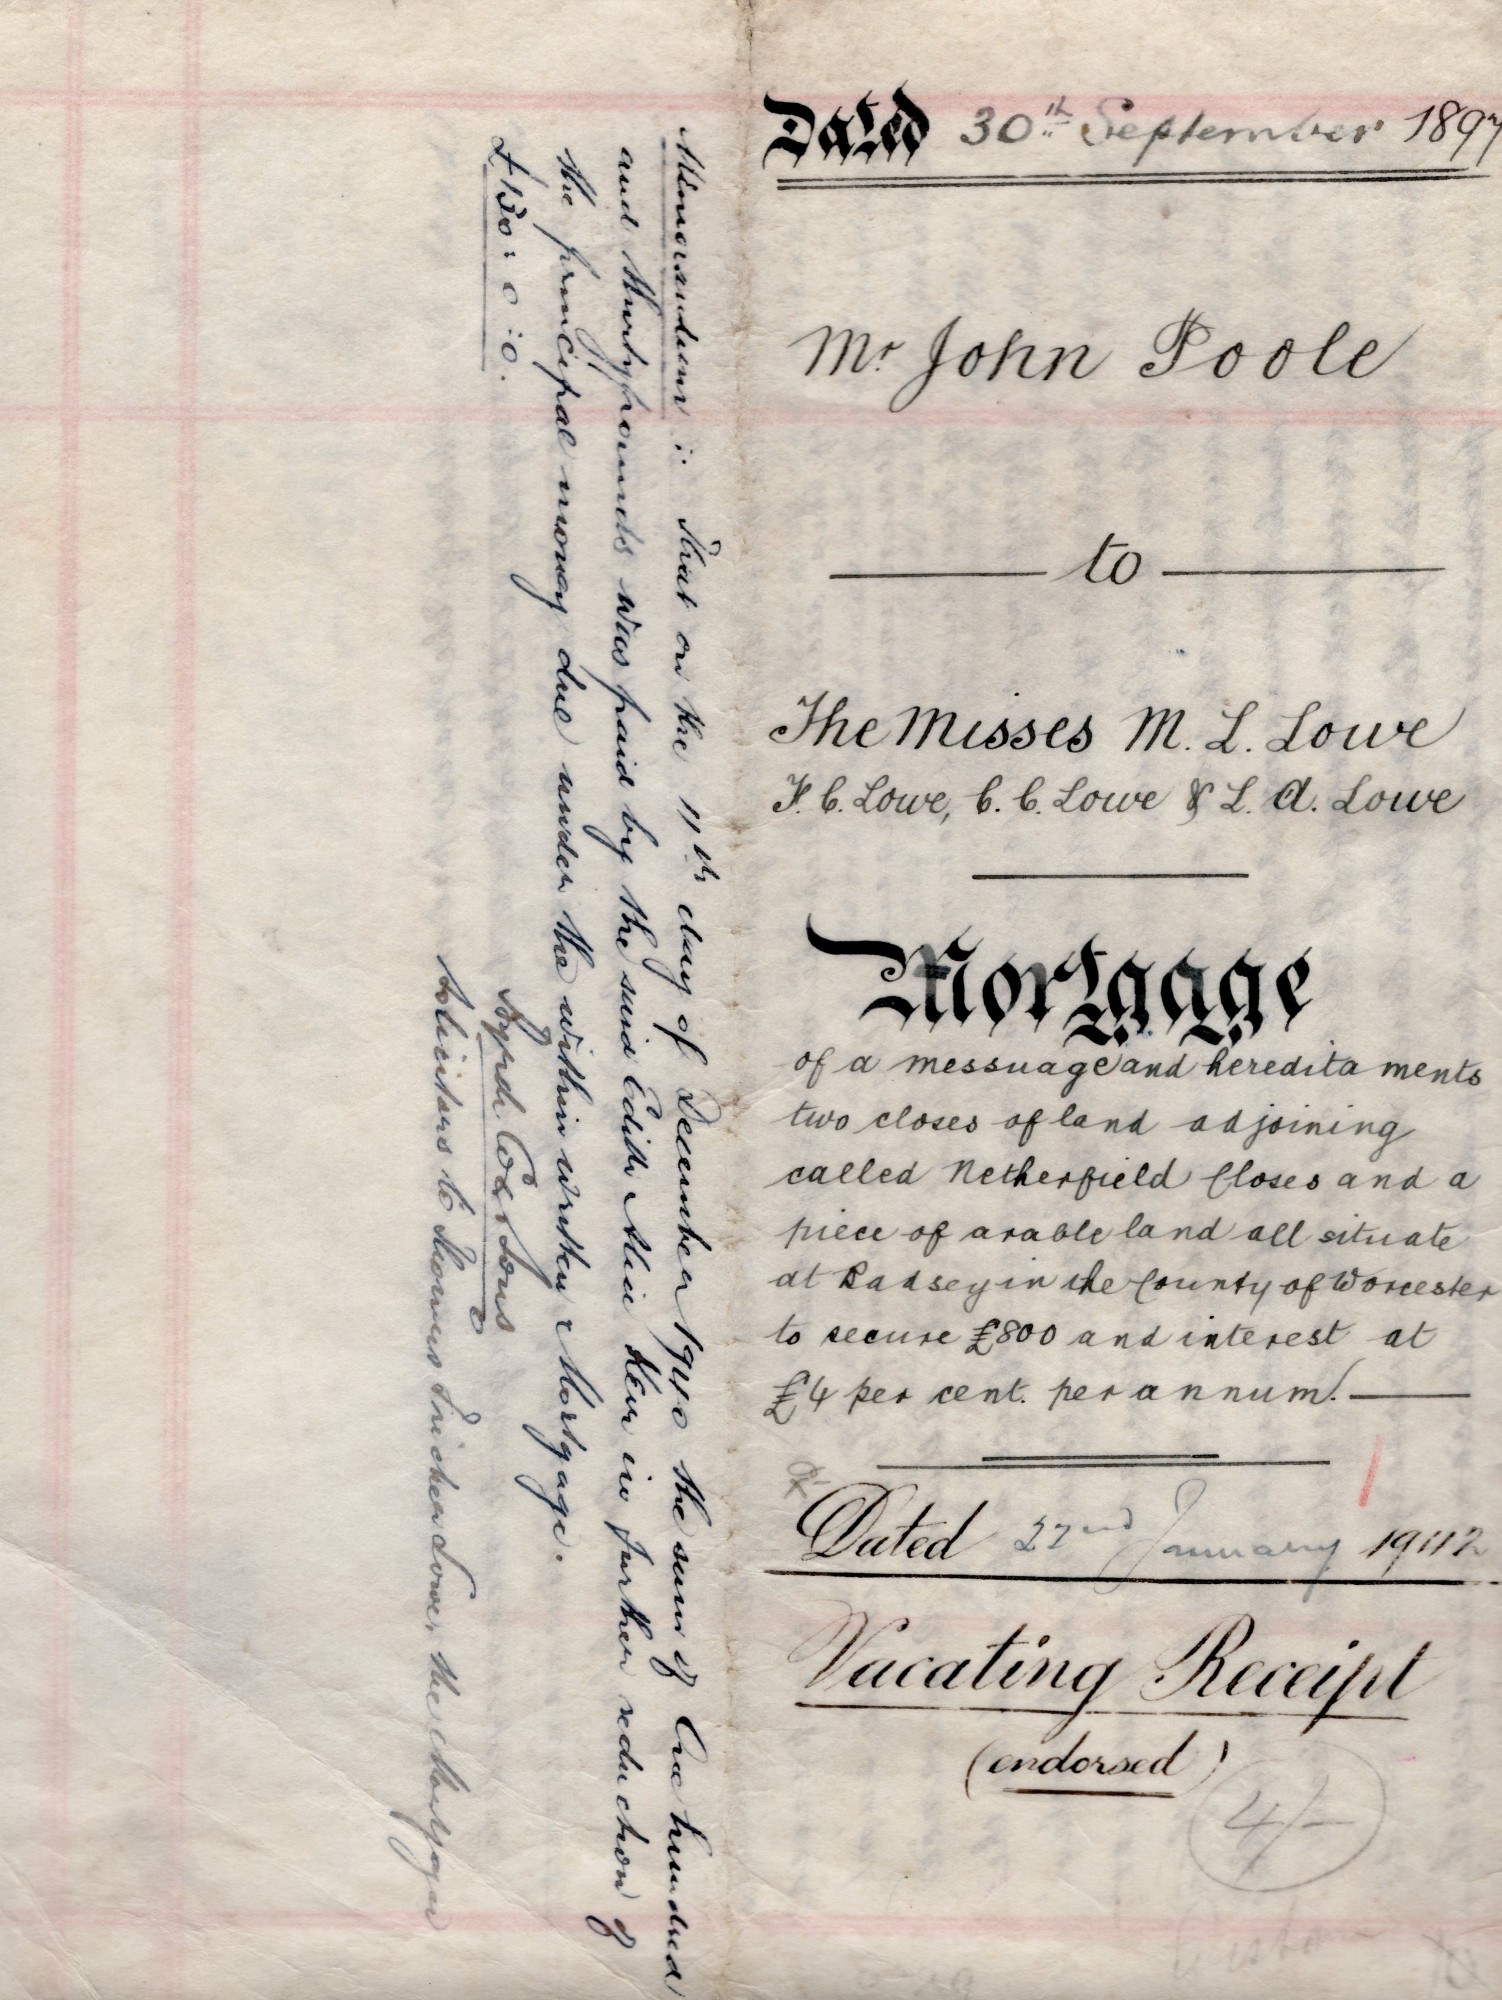 Dated 30th September 1897
Mr. John Poole
to
The Misses M. L. Lowe
F. C. Lowe, C. C. Lowe & L. A. Lowe
Mortgage
of a messuage and hereditaments
two closes of land adjoining
called Netherfield Closes and a
piece of arable land all situate
at Badsey in the County of Worcester
to secure £800 and interest at
£4 per cent. per annum.
Dated 22nd January 1942
Vacating Receipt
(endorsed)
4/-
Memorandum: That on the 11th day of December 1940 the sum of One hundred
and thirty pounds was paid by the said Edith Alice Keen in further reduction of
the principal money due under the within written Mortgage.
£130: 0: 0.
Byrch Cox & Sons
Solicitors to Lowe, the Mortgagee